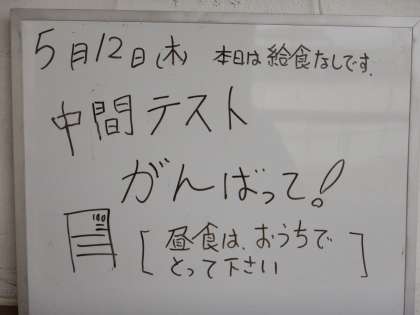 5月12日(木) 本日は給食なしです.
中間テスト
がんばって!
100
[昼食は、おうちで
とって下さい]